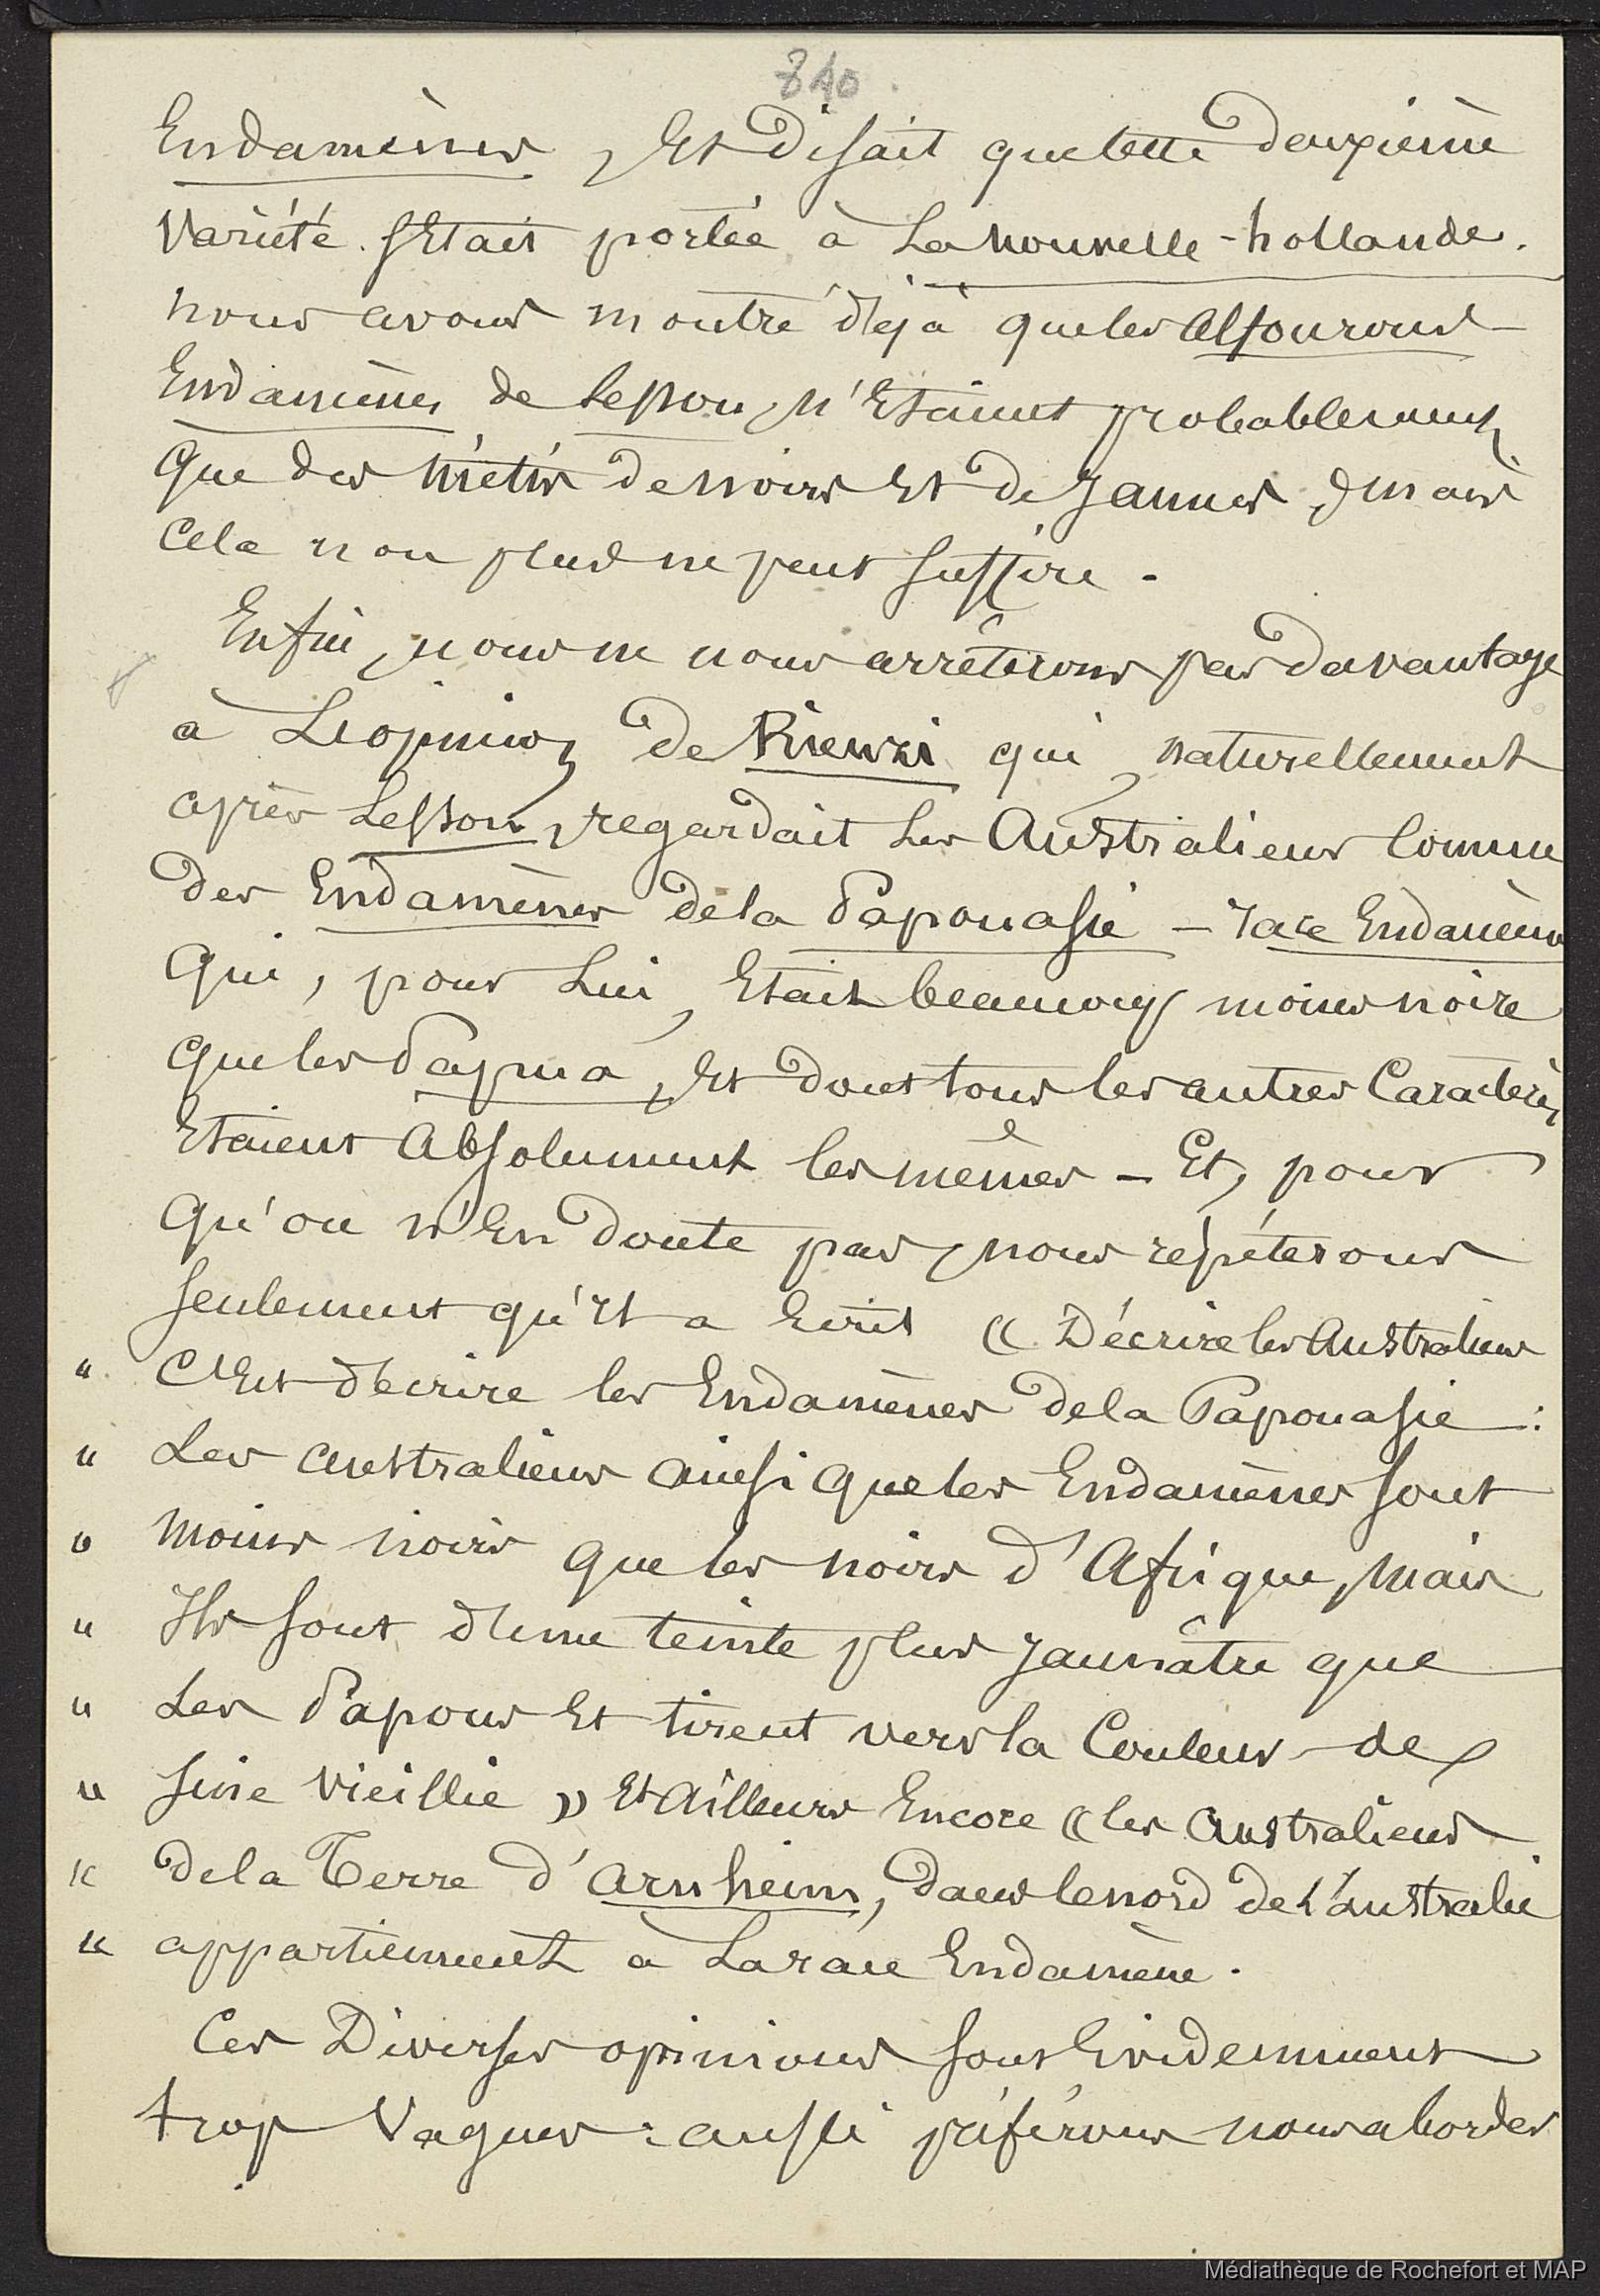 840
Endamènes, Et disait que cette deuxième
Variété s'Etait portée à La nouvelle-hollande.
nous avons montré déjà que les Alfourous
Endamènes de Lesson, n'Etaient probablement
que des métis de noirs Et de jaunes, mais
Cela non plus ne peut suffire.
Enfin, nous ne nous arrêterons pas davantage
à L'opinion de Rienzi qui, naturellement
après Lesson, regardait Les Australiens Comme
des Endamènes de la Papouasie – race Endamène
qui, pour Lui, Etait beaucoup moins noire
que les Papua, Et dont tous les autres Caractères
Etaient Absolument les mêmes – Et, pour
qu'on n'En doute pas, nous répéterons
seulement qu'Il a Ecrit « Décrire les Australiens
" C'Est décrire les Endamènes de la Papouasie :
" Les australiens ainsi que les Endamènes sont
" moins noirs que les noirs d'Afrique, mais
" Ils sont d'une teinte plus jaunâtre que
" Les Papous Et tirent vers la Couleur de
" suie vieillie » Et Ailleurs Encore « les australiens
" de la Terre d'arnheim, dans le nord de l'australie
" appartiennent à La race Endamène.
Ces Diverses opinions sont Evidemment
trop Vagues : aussi préférons nous aborder
Médiathèque de Rochefort et MAP